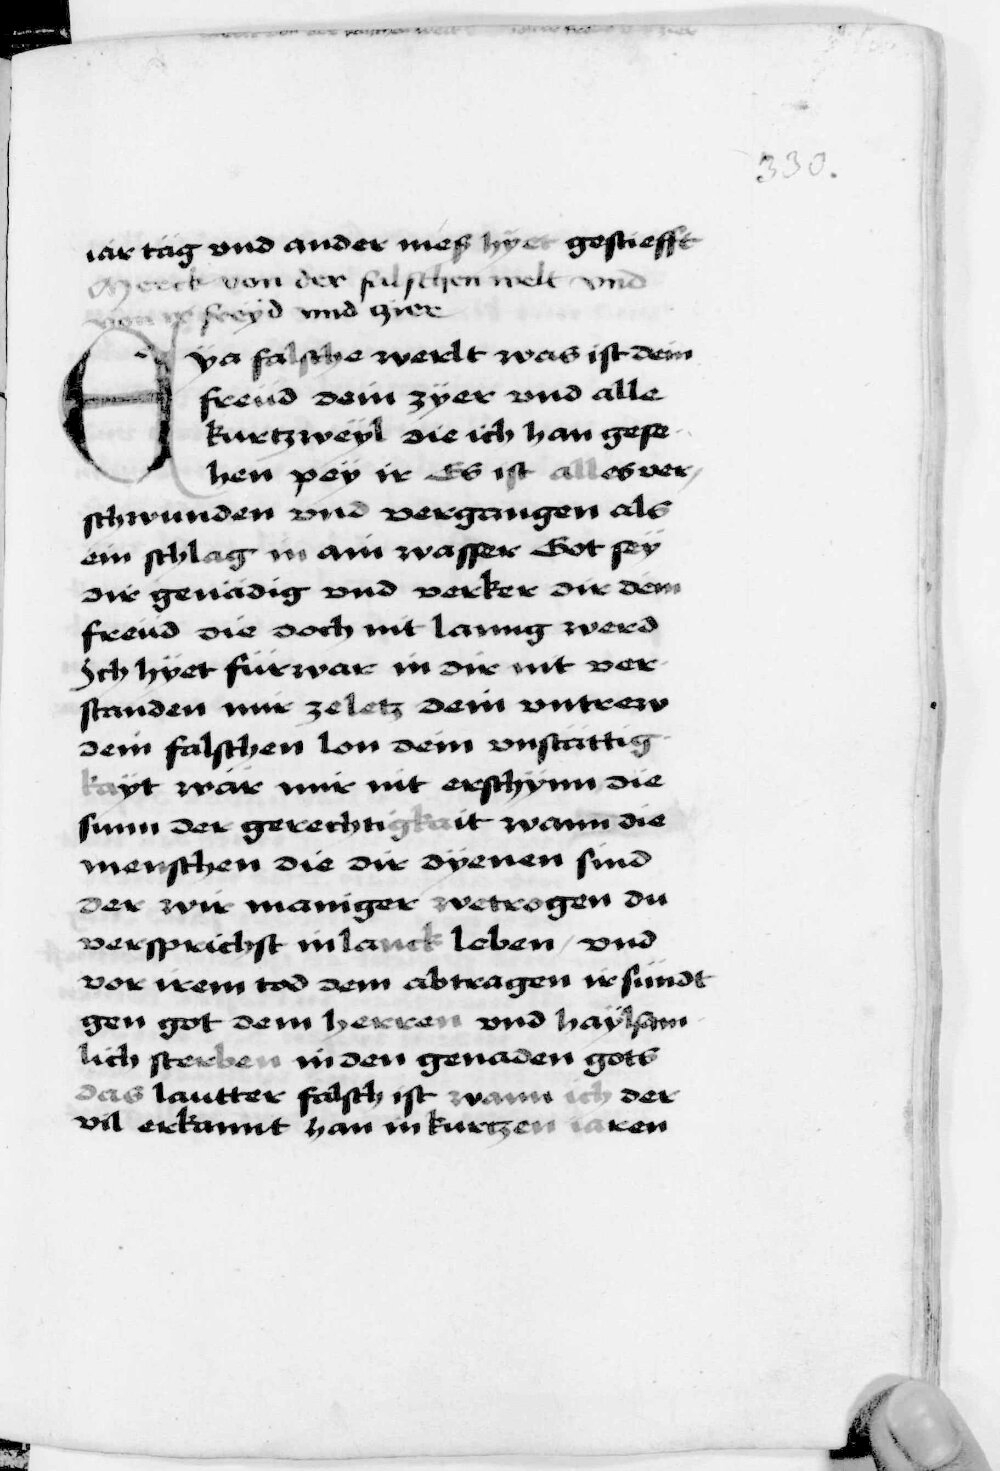 330.
iar täg vnd ander mess hyet gestiefft
Merck von der falschen welt vnd
von ir freyd vnd zier
Eya falsche werlt was ist dein
freüd dein zÿer vnd alle
kurtzweÿl die ich han gese-
hen peÿ ir Es ist alles ver/
schwunden vnd vergangen als
ein schlag in ain wasser Got seÿ
dir genädig vnd verker dir dein
freüd die doch nit lanng werd
Ich hÿet fürwar in dir nit ver-
standen mir zeletz dein vntrew
dein falschen lon dein vnstattig-
kaÿt wär mir nit erschÿnn die
sunn der gerechtigkait wann die
menschen die dir dÿenen sind
der wir maniger wetrogen du
versprichst in lanck leben / vnd
vor irem tod dem abtragen ir sündt
gen got dem herren vnd haÿlsam-
lich sterben in den genaden gots
das lautter falsch ist wann ich der
vil erkannt han in kurtzen iaren